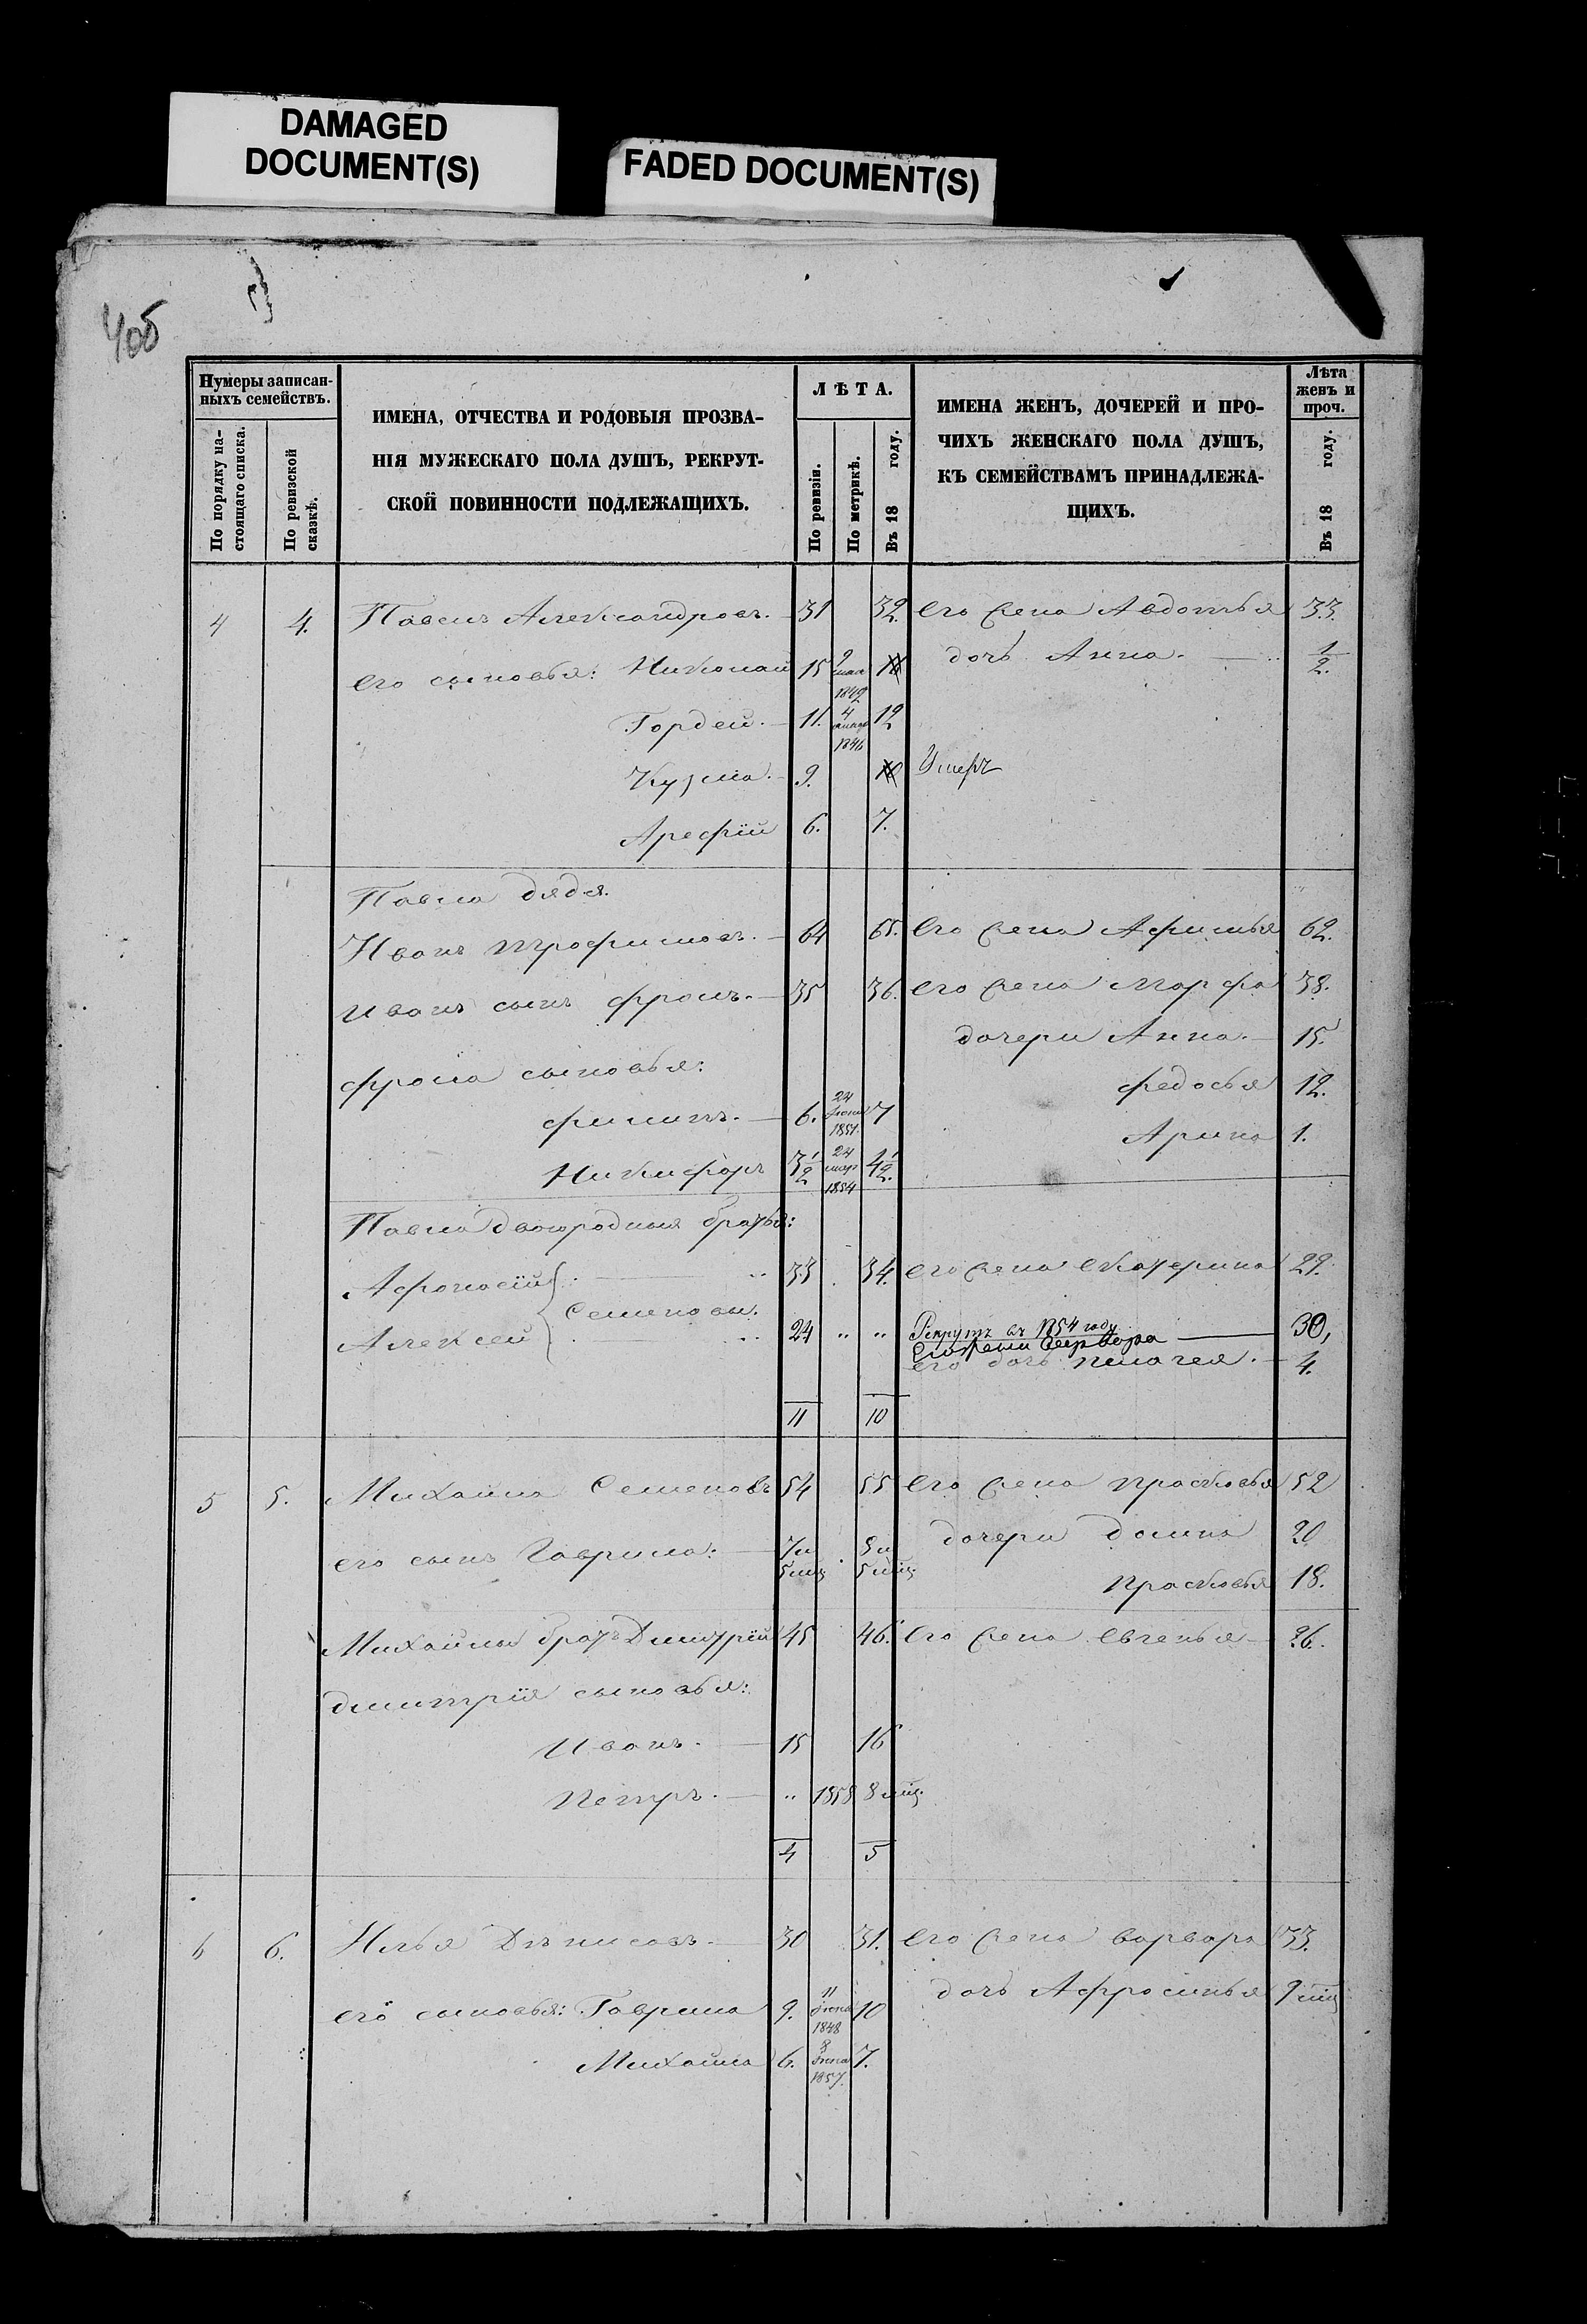 DAMAGED
DOCUMENT(S)
FADED DOCUMENT(S)
406
Нумеры записан-
ныхъ семействъ.
По порядку на-
стоящаго списка.
По ревизской
сказкѣ.
ИМЕНА, ОТЧЕСТВА И РОДОВЫЯ ПРОЗВА-
НІЯ МУЖЕСКАГО ПОЛА ДУШЪ, РЕКРУТ-
СКОЙ ПОВИННОСТИ ПОДЛЕЖАЩИХЪ.
ЛѢТА.
По ревизіи.
По метрикѣ.
Въ 18 году.
ИМЕНА ЖЕНЪ, ДОЧЕРЕЙ И ПРО-
ЧИХЪ ЖЕНСКАГО ПОЛА ДУШЪ,
КЪ СЕМЕЙСТВАМЪ ПРИНАДЛЕЖА-
ЩИХЪ.
Лѣта
женъ и
проч.
Въ 18 году.
4 4. Павелъ Александровъ. 31 32. его жена Авдотья 33.
его сыновья: Николай 15 9 мая 1842 дочь Анна. 1/2.
Гордей. 11. 4 1846 12
Кузма. 9. Умеръ
Арефій 6. 7.
Павла дядя.
Иванъ Трофимовъ. 64 65. его жена Афимья 62.
Ивана сынъ Фролъ. 35 36. его жена Марфа 38.
дочери Анна. 15.
Фрола сыновья: Федосья 12.
Филипъ. 6. 24 1851. 7
Арина 1.
Никифоръ 3 1/2 24 мар 1854 4 1/2.
Павла двоюродныя братья:
Афонасій 33 34. его жена Екатерина 29.
Семеновы.
Алексей 24 „ „ Рекрутъ въ 1854 году
его жена Варвара 30,
его дочь Пелагея. 4.
11 10
5 5. Михайла Семеновъ 54 55 его жена Прасковья 52
его сынъ Гаврила: дочери Домна 20
Прасковья 18.
Михайлы братъ Дмитрій 45 46. его жена Евгенья 26.
Дмитрія сыновья:
Иванъ. 15 16
Петръ. „ 1858 8 мѣц.
4 5
6 6. Илья Дѣнисовъ. 30 31. его жена Варвара 33.
его сыновья: Гаврила 9. 11 1848 10 дочь Афросинья 9 мѣц
Михайла 6. 8 1857. 7.